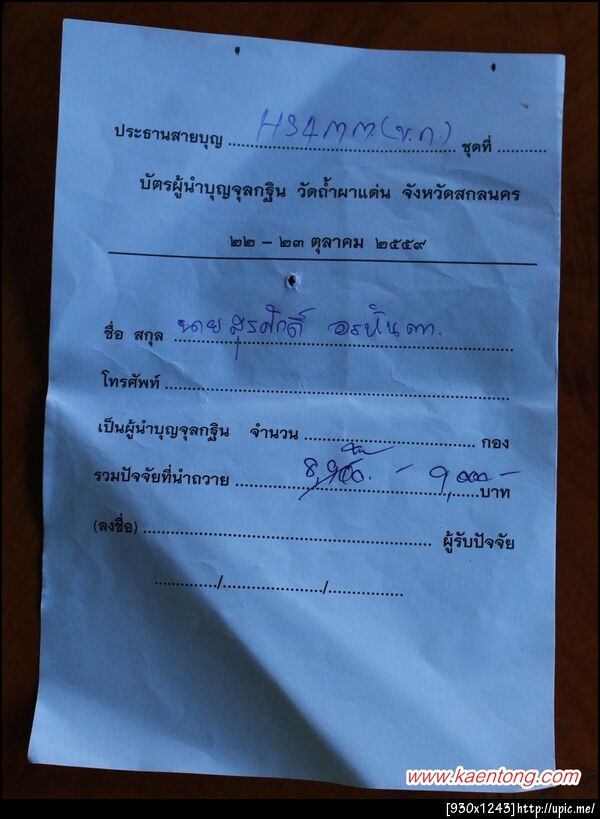 ประธานสายบุญ ........ ชุดที่ ........
บัตรผู้นำบุญจุลกฐิน วัดถ้ำผาแด่น จังหวัดสกลนคร
๒๒ - ๒๓ ตุลาคม ๒๕๕๙
ชื่อ สกุล นายสุรศักดิ์ อรหันตา
โทรศัพท์ ........
เป็นผู้นำบุญจุลกฐิน จำนวน ........ กอง
รวมปัจจัยที่นำถวาย ........ - ๙,๐๐๐ - บาท
(ลงชื่อ) ........ ผู้รับปัจจัย
......../......../........
www.kaentong.com
[930x1243]http://upic.me/